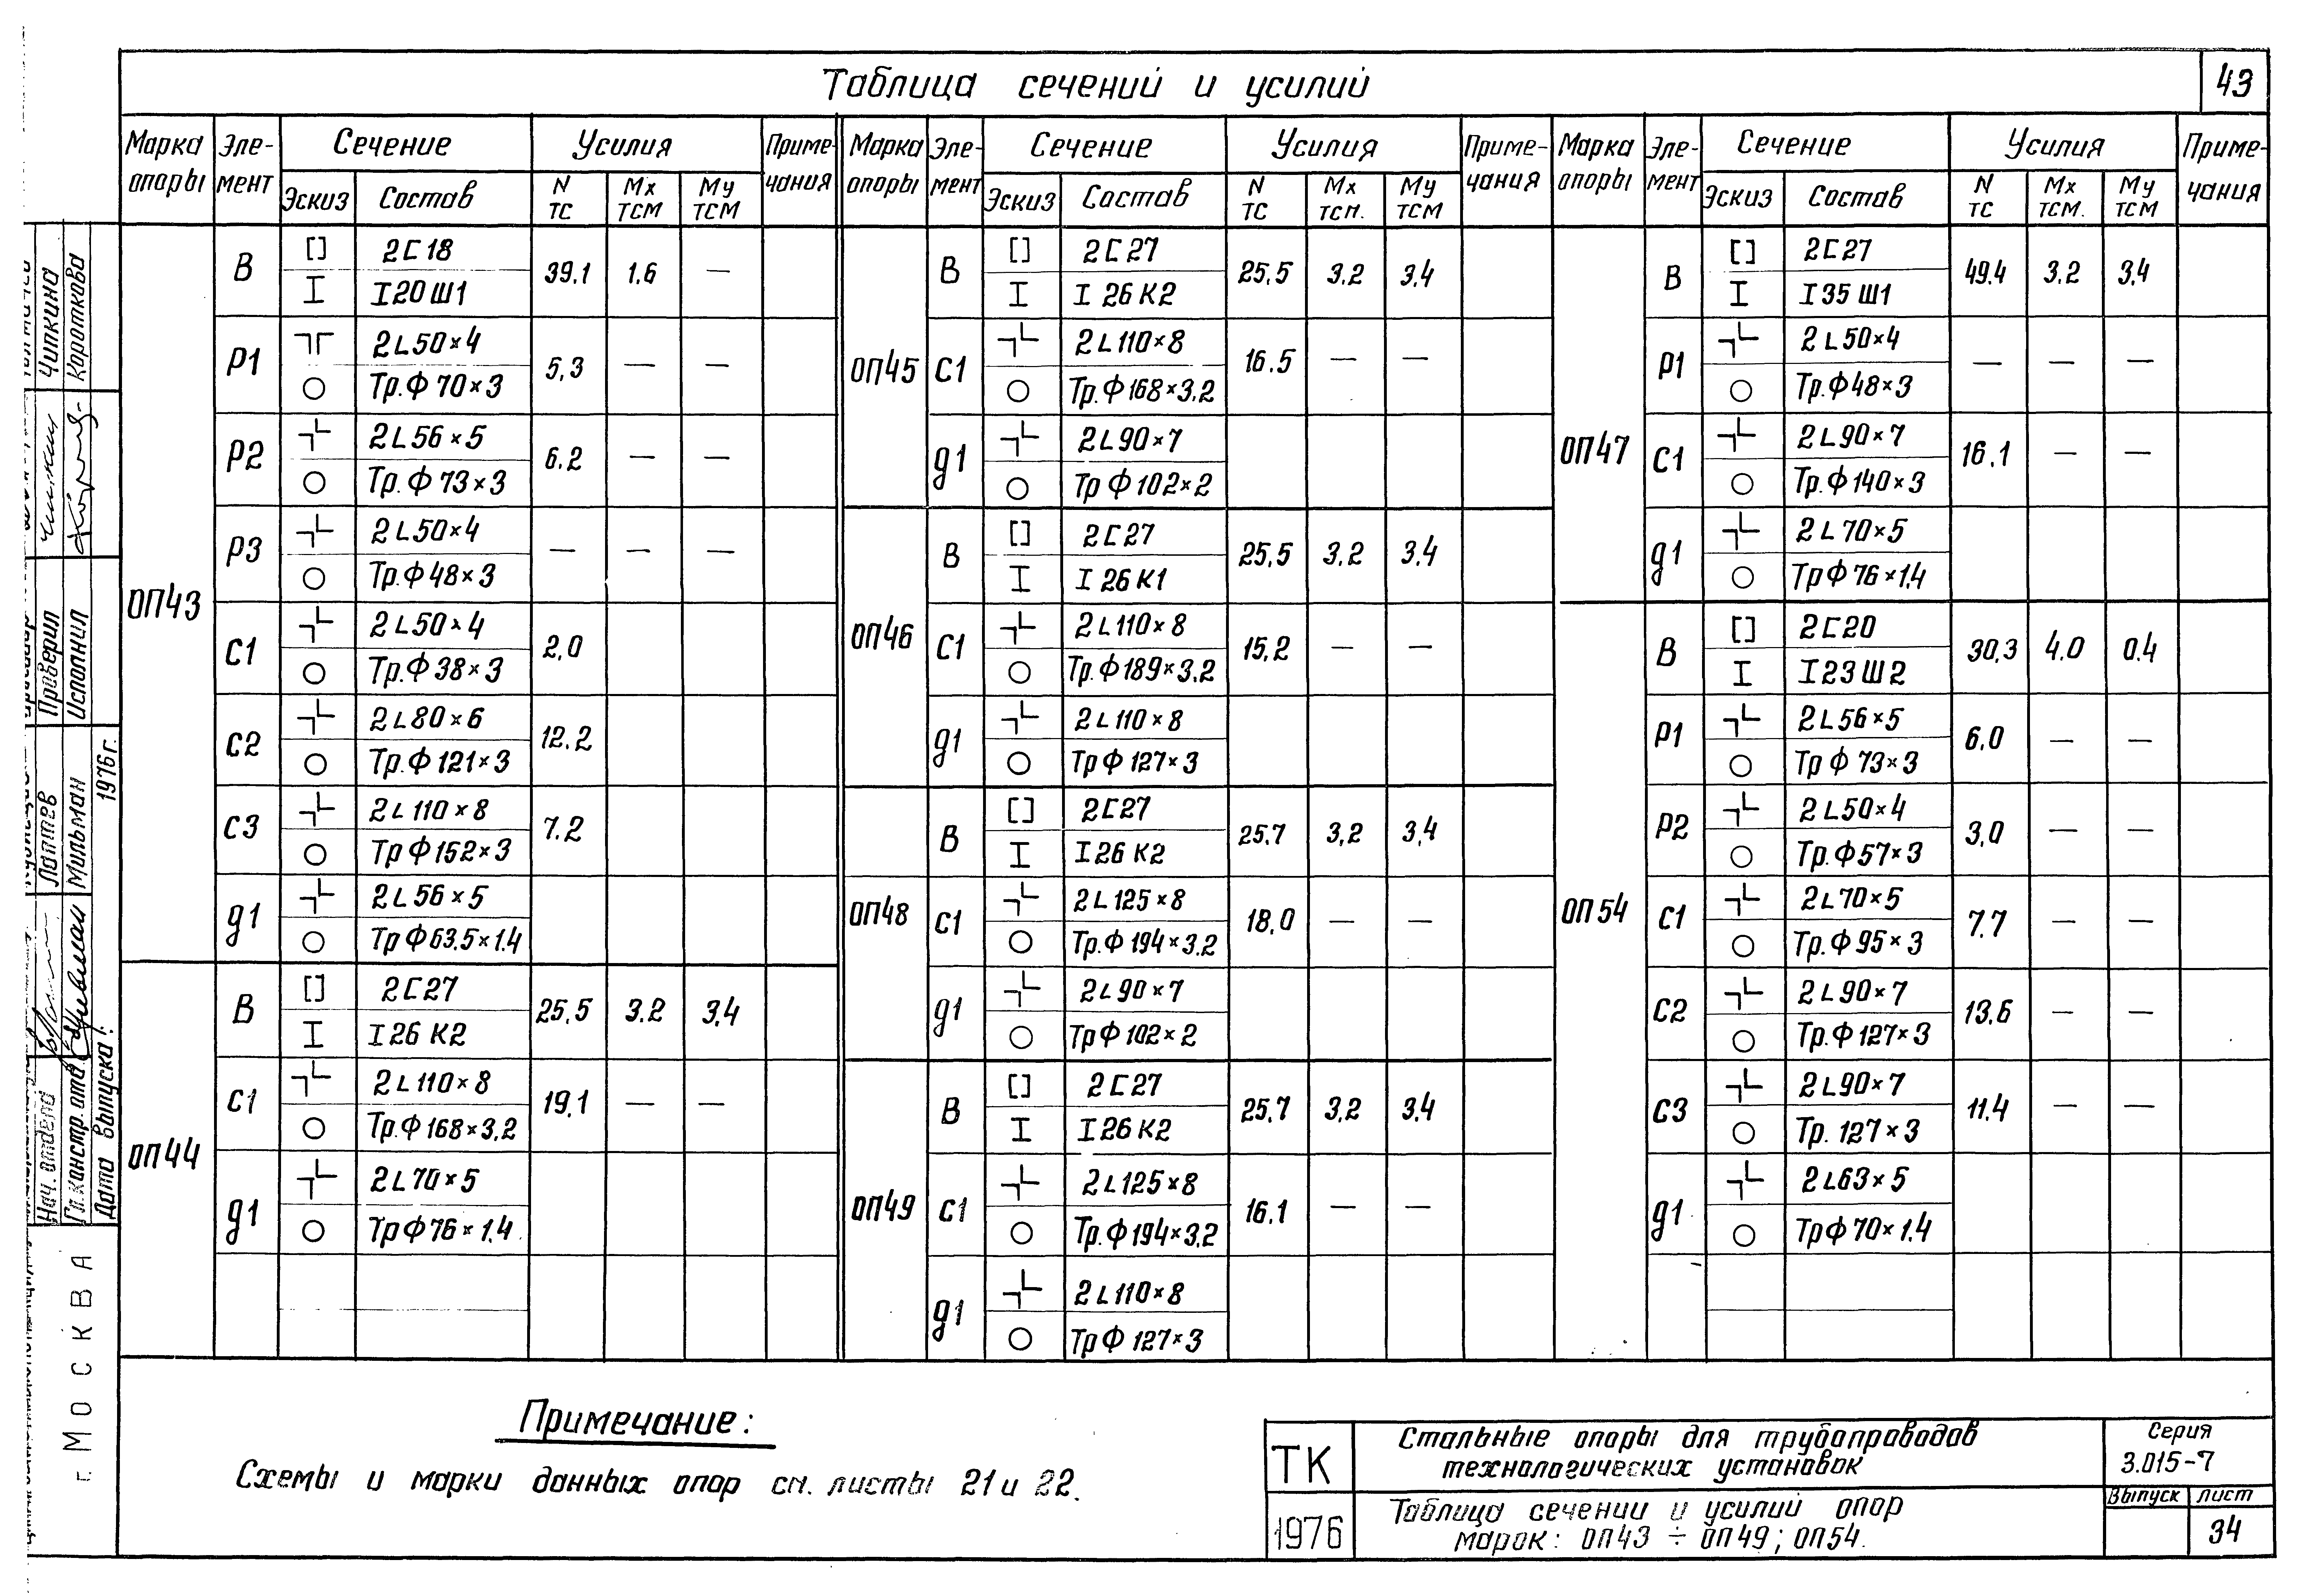 Таблица сечений и усилий
43
Марка опоры
Эле-мент
Сечение
Усилия
Приме-чания
Марка опоры
Эле-мент
Сечение
Усилия
Приме-чания
Марка опоры
Эле-мент
Сечение
Усилия
Приме-чания
Эскиз Состав N тс Mx тсм My тсм
Эскиз Состав N тс Mx тсм. My тсм
Эскиз Состав N тс Mx тсм. My тсм
ОП43
В 2[18 39.1 1.6 —
I20Ш1
Р1 2L50×4 5,3 — —
Тр.Ф70×3
Р2 2L56×5 6.2 — —
Тр.Ф73×3
Р3 2L50×4 — — —
Тр.Ф48×3
С1 2L50×4 2,0
Тр.Ф38×3
С2 2L80×6 12.2
Тр.Ф121×3
С3 2L110×8 7.2
ТрФ152×3
д1 2L56×5
ТрФ63.5×1.4
ОП44
В 2[27 25.5 3.2 3,4
I26К2
С1 2L110×8 19,1 — —
Тр.Ф168×3,2
д1 2L70×5
ТрФ76×1.4
ОП45
В 2[27 25,5 3,2 3,4
I 26К2
С1 2L110×8 16.5 — —
Тр.Ф168×3,2
д1 2L90×7
Тр Ф102×2
ОП46
В 2[27 25,5 3,2 3,4
I 26К1
С1 2L110×8 15,2 — —
Тр.Ф189×3.2
д1 2L110×8
ТрФ127×3
ОП48
В 2[27 25.7 3,2 3,4
I26К2
С1 2L125×8 18,0 — —
Тр.Ф194×3.2
д1 2L90×7
ТрФ102×2
ОП49
В 2[27 25.7 3,2 3,4
I26К2
С1 2L125×8 16.1 — —
Тр.Ф194×3,2
д1 2L110×8
ТрФ 127×3
ОП47
В 2[27 49.4 3,2 3,4
I35Ш1
Р1 2L50×4 — — —
Тр.Ф48×3
С1 2L90×7 16.1 — —
Тр.Ф140×3
д1 2L70×5
ТрФ76×1,4
ОП54
В 2[20 30,3 4.0 0.4
I23Ш2
Р1 2L56×5 6.0 — —
Тр Ф73×3
Р2 2L50×4 3,0 — —
Тр.Ф57×3
С1 2L70×5 7.7 — —
Тр.Ф95×3
С2 2L90×7 13,6 — —
Тр.Ф127×3
С3 2L90×7 11,4 — —
Тр. 127×3
д1 2L63×5
ТрФ70×1.4
Примечание:
Схемы и марки данных опор см. листы 21 и 22.
ТК
1976
Стальные опоры для трубопроводов
технологических установок
Таблица сечении и усилий опор
марок: ОП43 ÷ ОП49; ОП54.
Серия
3.015-7
Выпуск
лист
34
Чипкина
Короткова
Проверил
Исполнил
Лаптев
Мильман
1976г.
Нач. отдела
Гл.констр.отд
Дата выпуска:
г. МОСКВА